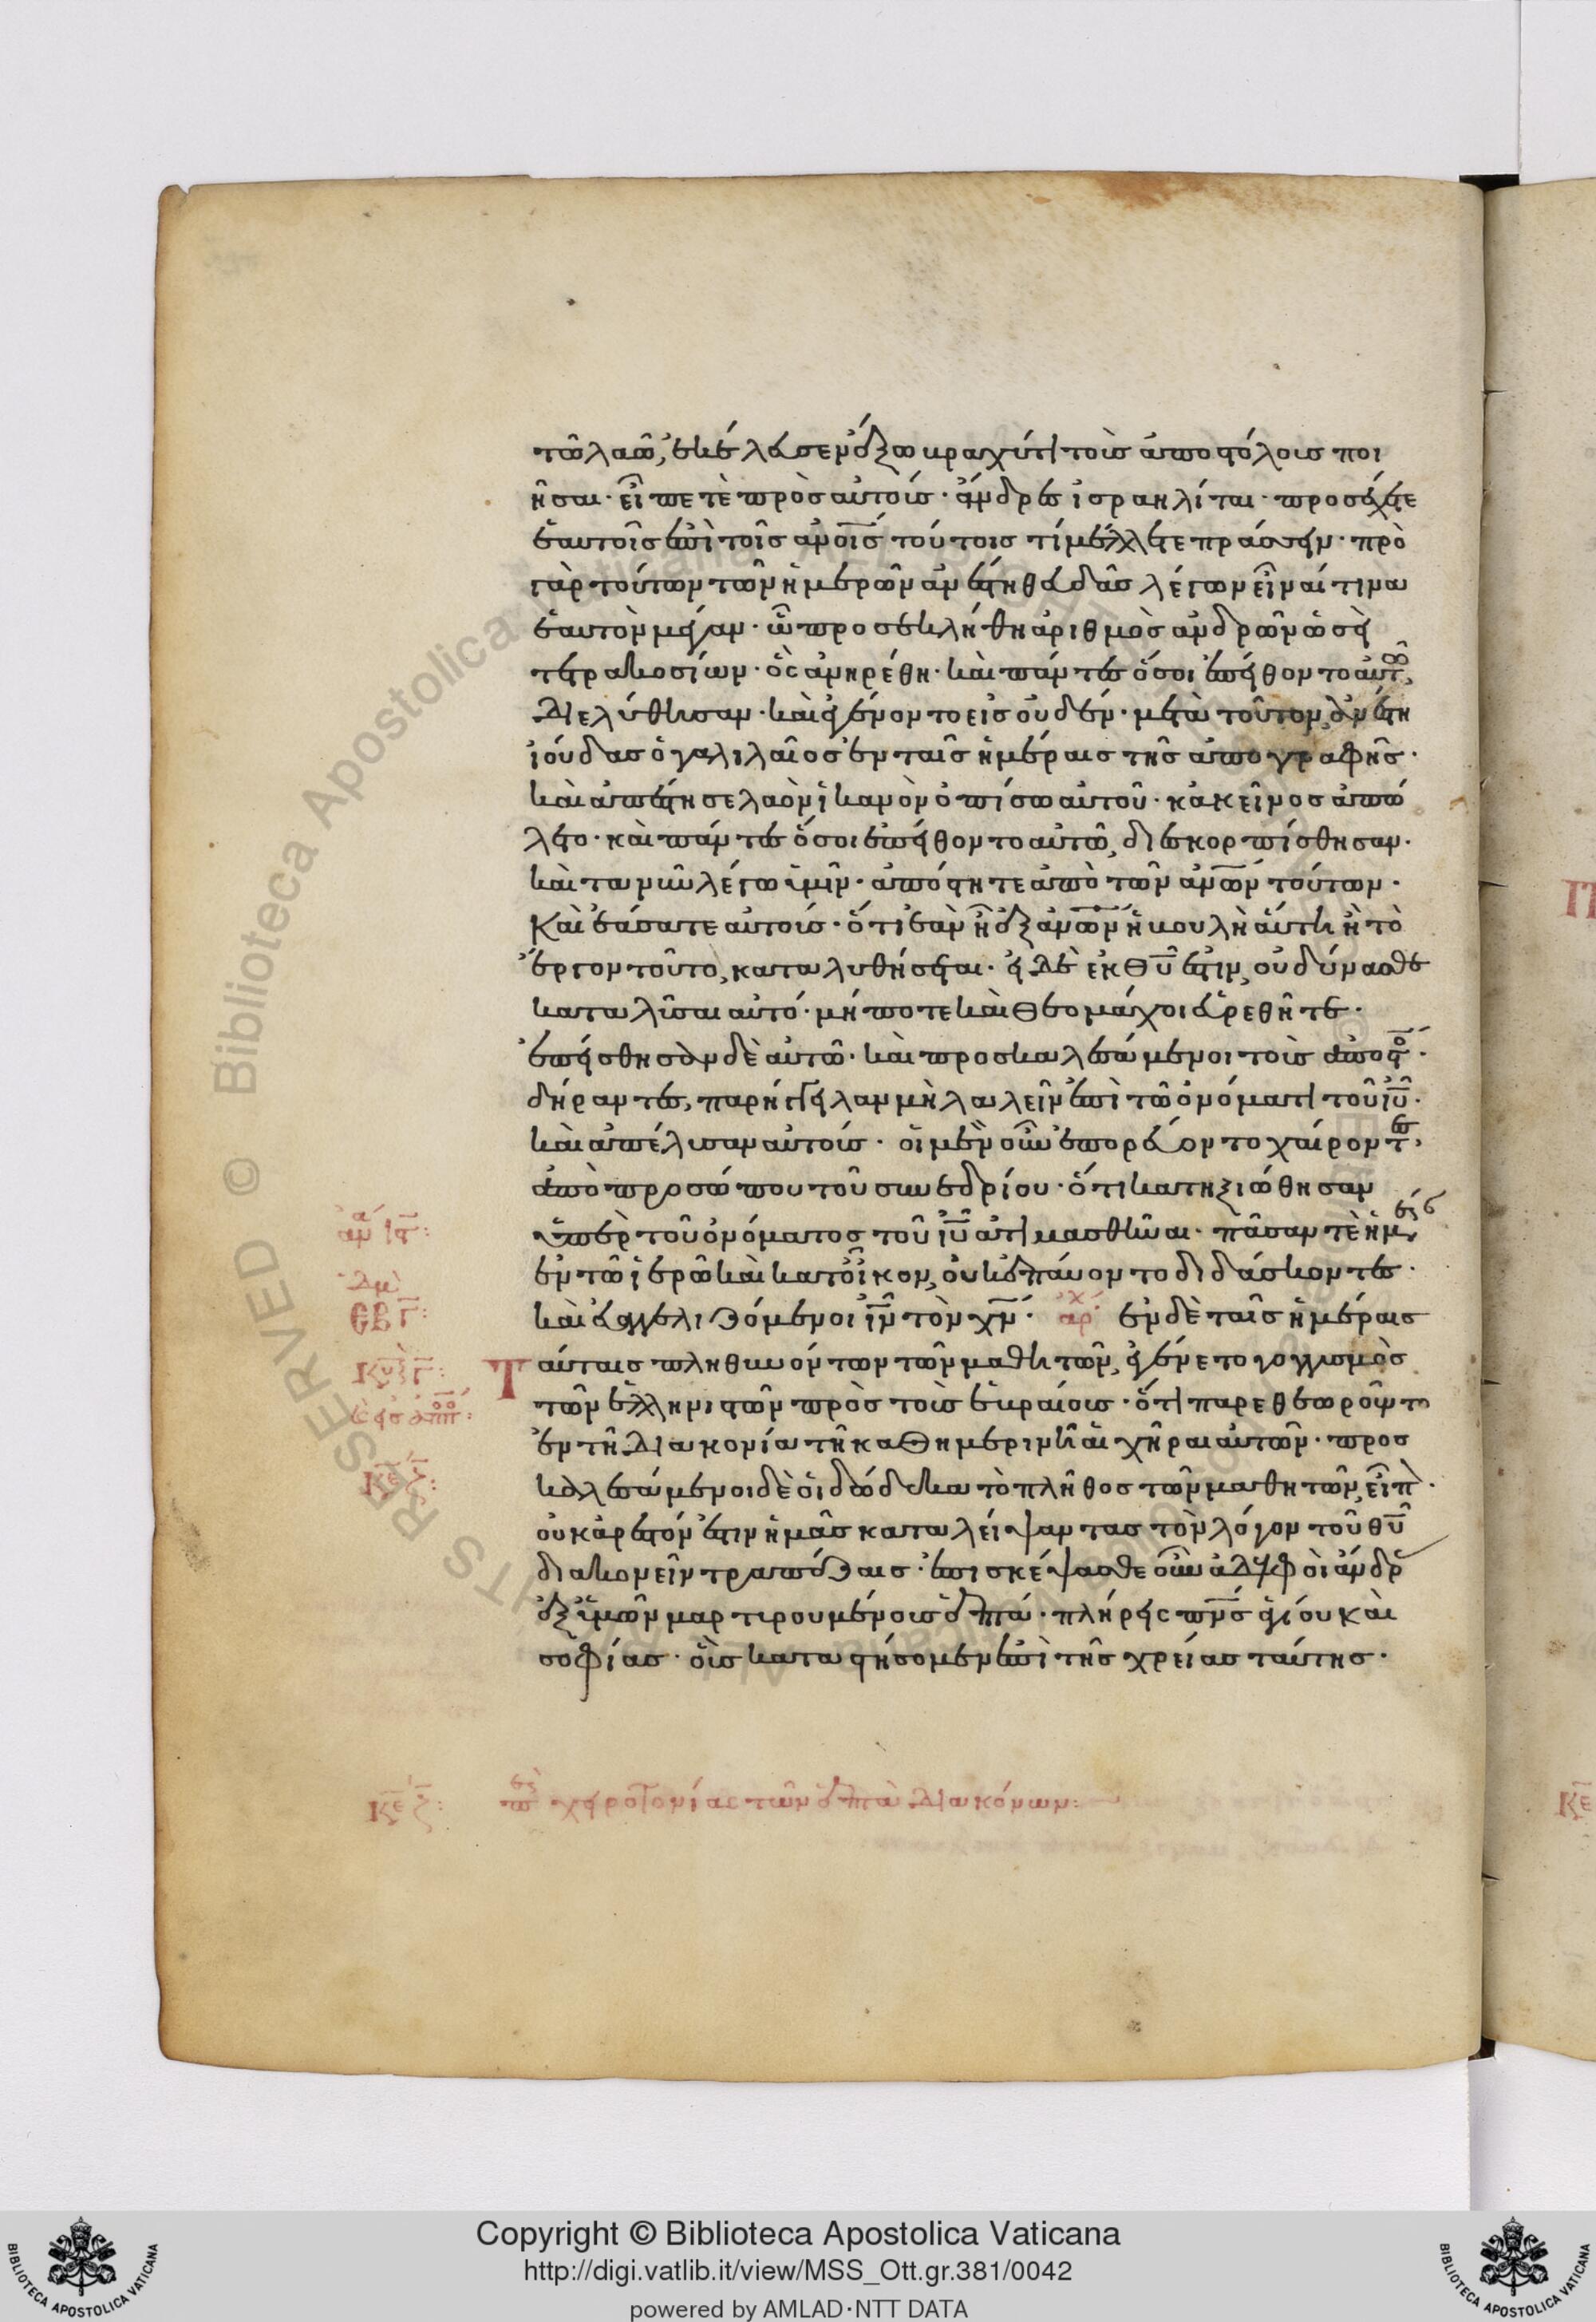 τῶ λαῶ, ἐκέλευσεν ἔξω βραχύ τι τοὺς ἀποστόλους ποι
ῆσαι· εἶπε τὲ πρὸς αὐτούς· ἄνδρες ἰσραηλίται· προσέχετε
ἑαυτοῖς ἐπὶ τοῖς ἀνοῖς τούτοις τί μέλλετε πράσσειν· πρὸ
γὰρ τούτων τῶν ἡμερῶν ἀνέστη θευδᾶς λέγων εἶναί τινα
ἑαυτὸν μέγαν· ὧ προσεκλήθη ἀριθμὸς ἀνδρῶν ὡσεὶ
τετρακοσίων· ὃς ἀνηρέθη· καὶ πάντες ὅσοι ἐπείθοντο αὐτῶ,
διελύθησαν· καὶ ἐγένοντο εἰς οὐδέν· μετὰ τοῦτον, ἀνέστη
ἰούδας ὁ γαλιλαῖος ἐν ταῖς ἡμέραις τῆς ἀπογραφῆς·
καὶ ἀπέστησε λαὸν ἱκανὸν ὀπίσω αὐτοῦ· κἀκεῖνος ἀπώ
λετο· καὶ πάντες ὅσοι ἐπείθοντο αὐτῶ, διεσκορπίσθησαν·
καὶ τανῦν λέγω ὑμῖν· ἀπόστητε ἀπὸ τῶν ἀνῶν τούτων·
Καὶ ἐάσατε αὐτούς· ὅτι ἐὰν ἦ ἐξ ἀνων ἡ βουλὴ αὕτη ἢ τὸ
ἔργον τοῦτο, καταλυθήσεται· εἰ δὲ ἐκ θυ ἐστιν, οὐ δύνασθε
καταλῦσαι αὐτό· μήποτε καὶ θεομάχοι εὑρεθῆτε·
ἐπείσθησαν δὲ αὐτῶ· καὶ προσκαλεσάμενοι τοὺς ἀποστό·
δήραντες, παρήγγειλαν μὴ λαλεῖν ἐπὶ τῶ ὀνόματι τοῦ ιυ·
καὶ ἀπέλυσαν αὐτούς· οἱ μὲν οὖν ἐπορεύοντο χαίροντες,
ἀπὸ προσώπου τοῦ συνεδρίου· ὅτι κατηξιώθησαν
ὑπὲρ τοῦ ὀνόματος τοῦ ιυ ἀτιμασθῆναι· πᾶσαν τὲ ἡμέρ
ἐν τῶ ἱερῶ καὶ κατοῖκον, οὐκ ἐπαύοντο διδάσκοντες·
καὶ εὐαγγελιζόμενοι ιν τὸν χν· ἀρχ ἐν δὲ ταῖς ἡμέραις
αύταις πληθυνόντων τῶν μαθητῶν, ἐγένετο γογγυσμὸς
τῶν ἑλληνιστῶν πρὸς τοὺς ἑβραίους· ὅτι παρεθεωροῦντο
ἐν τῆ διακονία τῆ καθημερινῆ αἱ χῆραι αὐτῶν· προσ
καλεσάμενοι δὲ οἱ δώδεκα τὸ πλῆθος τῶν μαθητῶν, εἶπ·
οὐκ ἀρεστόν ἐστιν ἡμᾶς καταλείψαντας τὸν λόγον τοῦ θυ
διακονεῖν τραπέζαις· ἐπισκέψασθε οὖν ἀδελφοὶ ἄνδρ
ἐξ ὑμῶν μαρτυρουμένους ἑπτά· πλήρεις πνς ἁγίου καὶ
σοφίας· οὓς καταστήσομεν ἐπὶ τῆς χρείας ταύτης·
Κε ζ:
χειροτονίας τῶν ἑπτὰ διακόνων:
Copyright © Biblioteca Apostolica Vaticana
http://digi.vatlib.it/view/MSS_Ott.gr.381/0042
powered by AMLAD·NTT DATA